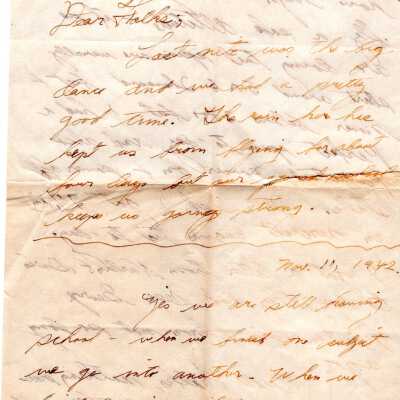 Dear Folks;
Last nite was the big
dance and we had a pretty
good time. The rain here has
kept us from flying for about
four days but our ground school
keeps us going strong.
Nov. 11, 1942.
Yes we are still having
school - when we finish one subject
we go into another. When we